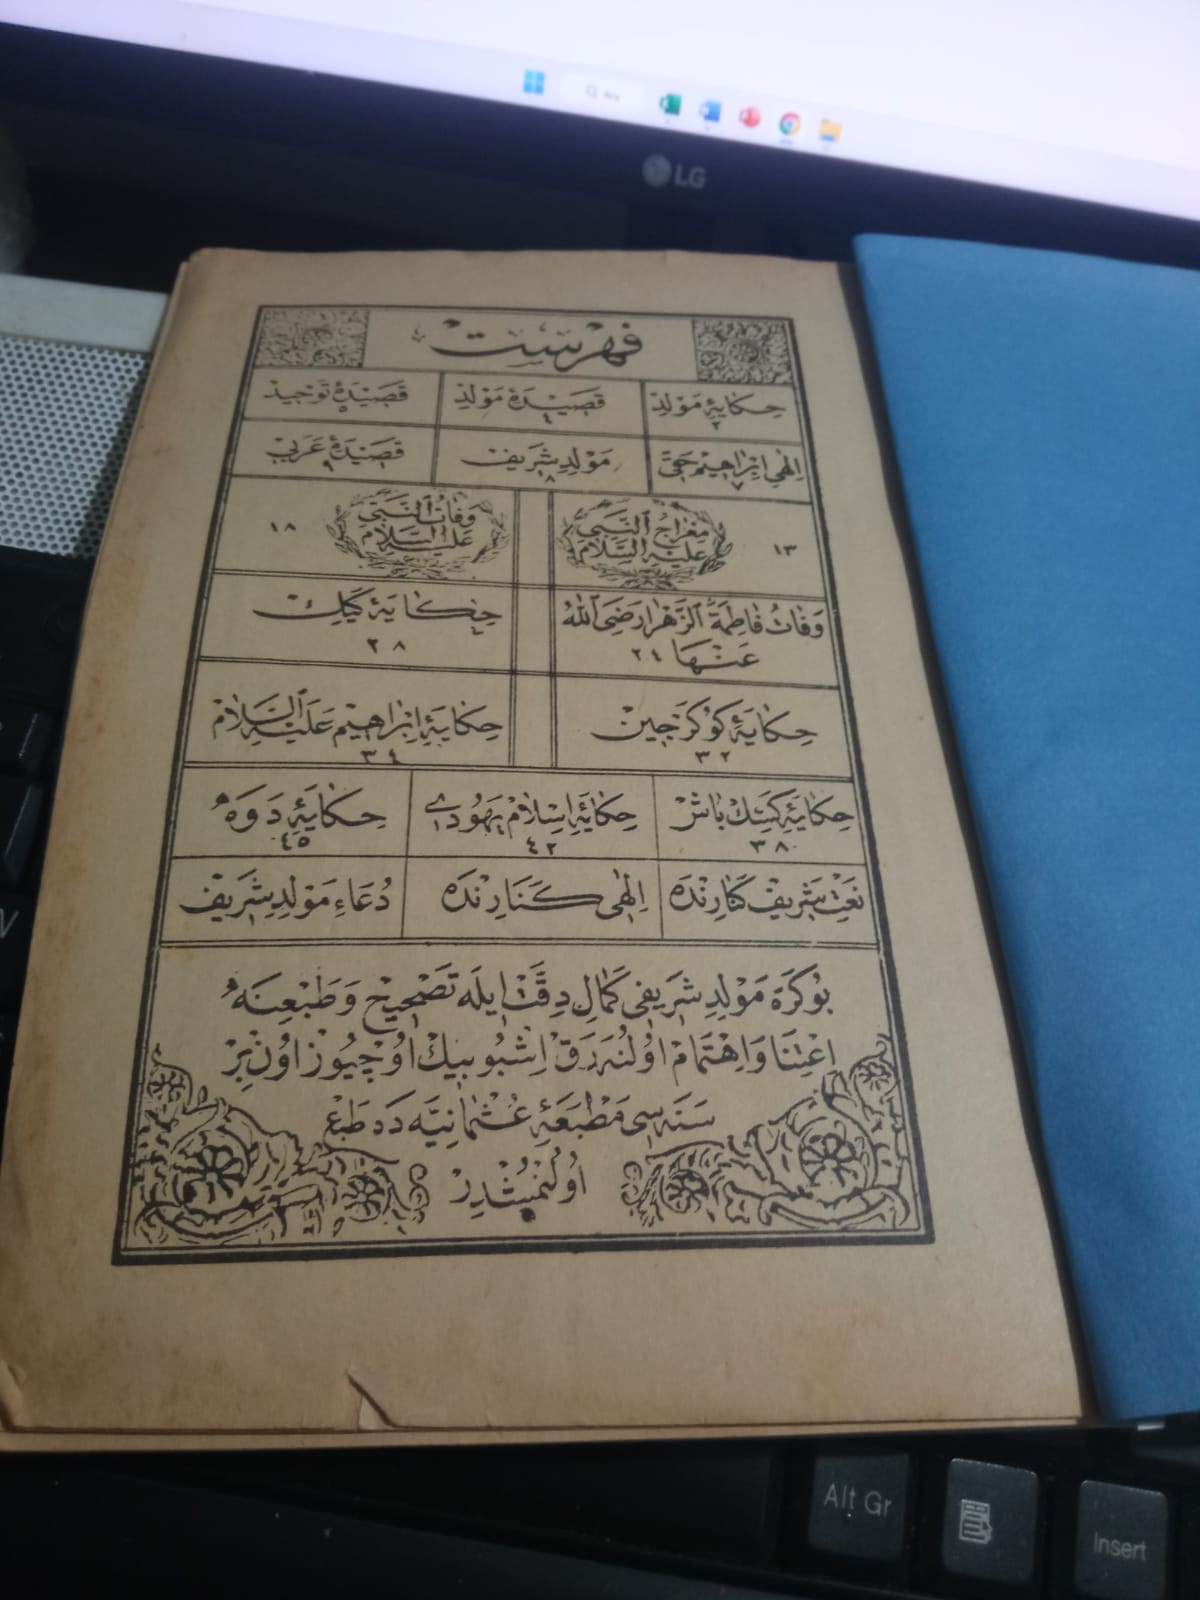 Ara
LG
فهرست
حكايۀ مولد ٢
قصيدۀ مولد ٤
قصيدۀ توحيد
الهی ابراهيم حقی ٧
مولد شريف ٨
قصيدۀ عربی ٩
١٣ معراج النبی عليه السلام
وفات النبی عليه السلام ١٨
وفات فاطمة الزهرا رضی الله
عنها ٢٤
حكايۀ كيك
٢٨
حكايۀ كوكرجين
٣٢
حكايۀ ابراهيم عليه السلام
٣٤
حكايۀ كستك باش
٣٨
حكايۀ اسلام يهودی
٤٢
حكايۀ دوه
٤٥
نعت شريف كنارنده
الهی كنارنده
دعاء مولد شريف
بو كره مولد شريفی كمال دقت ايله تصحيح و طبعنه
اعتنا و اهتمام اولنه رق اشبو بيك اوچيوز اون بر
سنه سی مطبعۀ عثمانيه ده طبع
اولنمشدر
Alt Gr
Insert